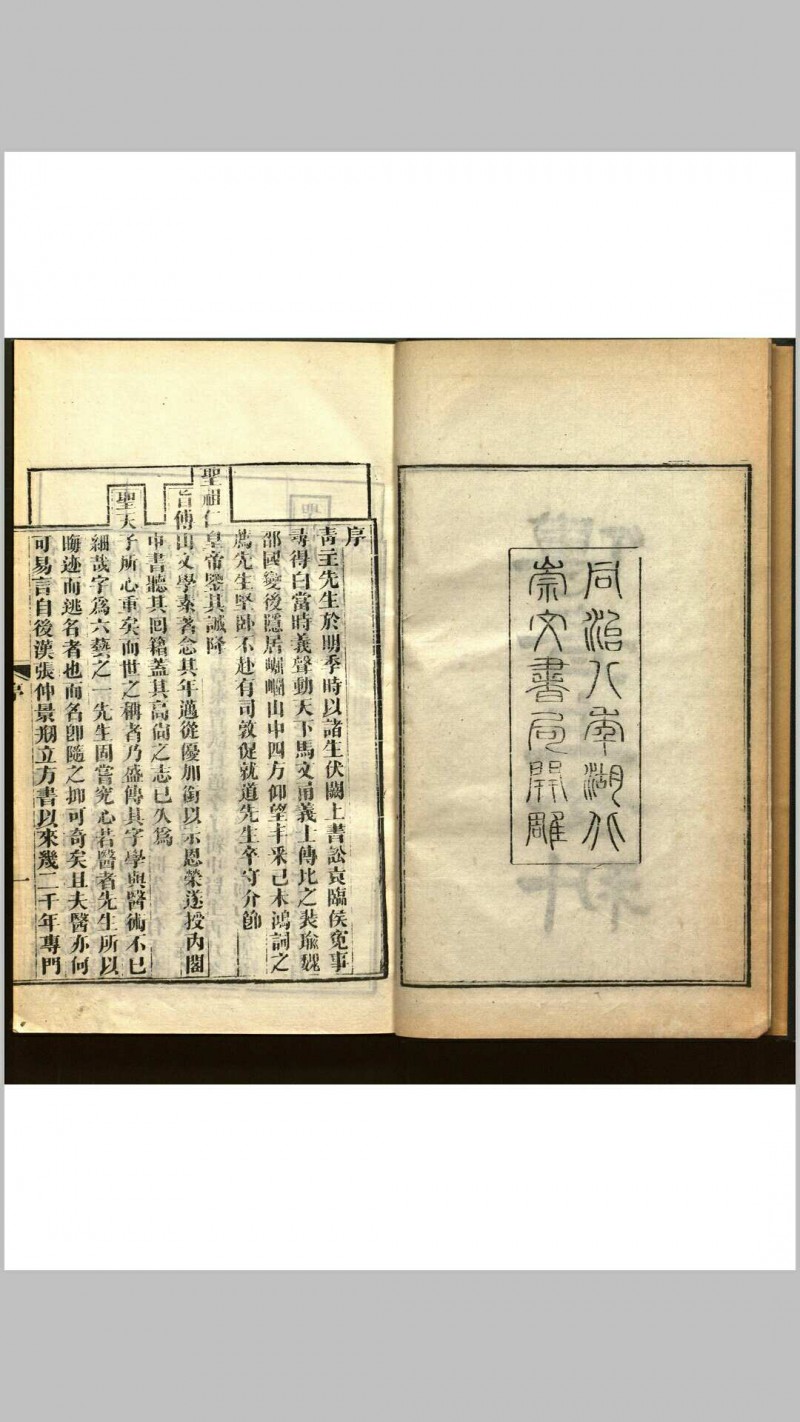 同治八年湖北
崇文書局開雕
序
青主先生於明季時以諸生伏闕上書訟袁臨侯冤事
尋得白當時義聲動天下馬文甬義士傳比之裴瑜魏
邵國變後隱居崛𡼊山中四方仰望丰采己未鴻詞之
薦先生堅卧不赴有司敦促就道先生卒守介節
聖祖仁皇帝鑒其誠降
旨傅山文學素著念其年邁從優加銜以示恩榮遂授內閣
中書聽其回籍蓋其高尚之志已久爲
聖天子所心重矣而世之稱者乃盛傳其字學與醫術不已
細哉字爲六藝之一先生固嘗究心若醫者先生所以
晦迹而逃名者也而名卽隨之抑可奇矣且夫醫亦何
可易言自後漢張仲景剏立方書以來幾二千年專門
序
一